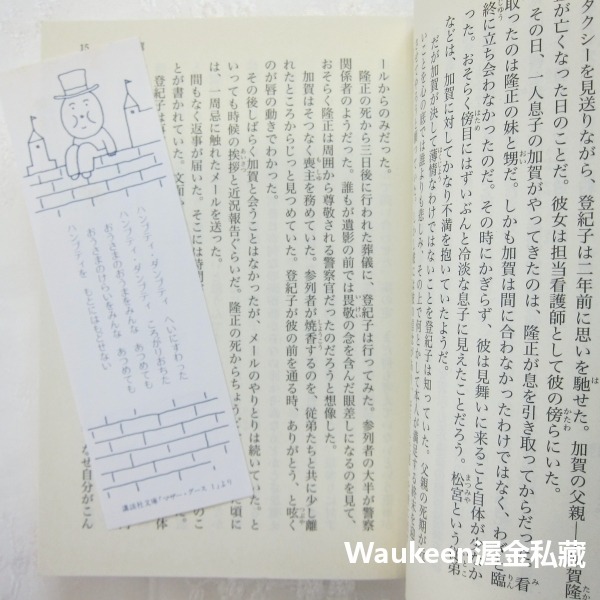 タクシーを見送りながら、登紀子は二年前に思いを馳せた。加賀の父親――加賀隆
正が亡くなった日のことだ。彼女は担当看護師として彼の傍らにいた。
その日、一人息子の加賀がやってきたのは、隆正が息を引き取ってからだった。看
取ったのは隆正の妹と甥だ。しかも加賀は間に合わなかったわけではなく、わざと臨
終に立ち会わなかったのだ。その時にかぎらず、彼は見舞いに来ること自体が少なか
った。おそらく傍目にはずいぶんと冷淡な息子に見えたことだろう。松宮という従弟
などは、加賀に対してかなり不満を抱いていたようだ。
だが加賀が決して薄情なわけではないことを登紀子は知っていた。父親の死期が
いことを心の底では誰よりも悲しみ、その上で何とかして本人が満足する最期を
ールからのみだった。
隆正の死から三日後に行われた葬儀に、登紀子は行ってみた。参列者の大半が警察
関係者のようだった。誰もが遺影の前では畏敬の念を含んだ眼差しになるのを見て、
おそらく隆正は周囲から尊敬される警察官だったのだろうと想像した。
加賀はそつなく喪主を務めていた。参列者が焼香するのを、従弟たちと共に少し離
れたところからじっと見つめていた。登紀子が彼の前を通る時、ありがとう、と呟く
のが唇の動きでわかった。
その後しばらく加賀と会うことはなかったが、メールのやりとりは続いていた。と
いっても時候の挨拶と近況報告ぐらいだ。隆正の死からちょうど た頃に
は、一周忌に触れたメールを送った。
間もなく返事が届いた。そこには時間
とが書かれていた。文面
登紀子は
なぜ自分がこん
15
ハンプティ・ダンプティ へいにすわった
ハンプティ・ダンプティ ころがりおちた
おうさまのおうまをみんな あつめても
おうさまのけらいをみんな あつめても
ハンプティを もとにはもどせない
講談社文庫「マザー・グース 1」より
Waukeen渥金私藏